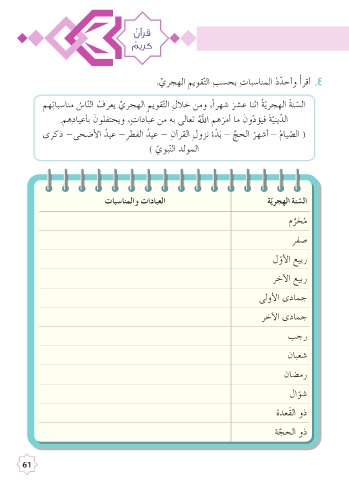 قرآن
كريم
٤. أَقرأُ وأُحدِّدُ المناسباتِ بحسبِ التّقويمِ الهجريِّ.
السّنةُ الهجريّةُ اثنا عشرَ شهراً، ومن خلالِ التّقويمِ الهجريِّ يعرفُ النّاسُ مناسباتِهم
الدّينيّةَ فيؤدّونَ ما أمرَهم اللّهُ تعالى به من عباداتٍ، ويحتفلونَ بأعيادِهم.
( الصّيامُ – أشهرُ الحجّ – بَدْءُ نزولِ القرآنِ – عيدُ الفطرِ – عيدُ الأضحى – ذكرى
المولد النّبويّ )
السّنة الهجريّة
العبادات والمناسبات
مُحرَّم
صفر
ربيع الأوّل
ربيع الآخر
جمادى الأولى
جمادى الآخر
رجب
شعبان
رمضان
شوّال
ذو القَعدة
ذو الحجّة
61